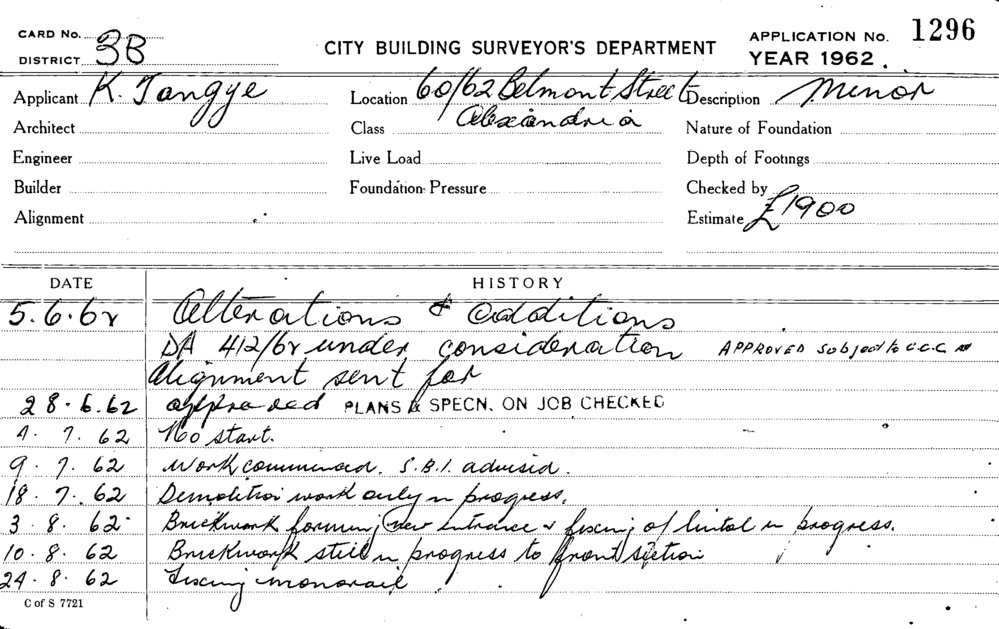 CARD No.
DISTRICT 3B
CITY BUILDING SURVEYOR'S DEPARTMENT
APPLICATION No. 1296
YEAR 1962.
Applicant K. Tangye
Location 60/62 Belmont Street
Alexandria
Description Minor
Architect
Class
Nature of Foundation
Engineer
Live Load
Depth of Footings
Builder
Foundation Pressure
Checked by
Alignment
Estimate £1900
DATE HISTORY
5.6.62 Alterations & additions
DA 412/62 under consideration APPROVED subject to C.C.C
Alignment sent for
28.6.62 approved PLANS & SPECN. ON JOB CHECKED
4. 7. 62 No start.
9. 7. 62 Work commenced. S.B.I. advised.
18. 7. 62 Demolition work only in progress.
3. 8. 62 Brickwork forming new entrance & fixing of lintol in progress.
10. 8. 62 Brickwork still in progress to front section
24. 8. 62 Fixing monorail
C of S 7721